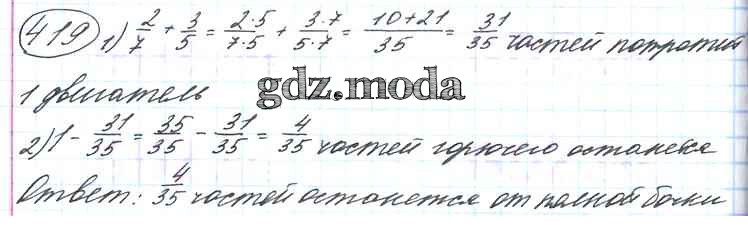 419 1) 2/7 + 3/5 = 2·5/7·5 + 3·7/5·7 = 10+21/35 = 31/35 частей потратит
1 двигатель
gdz.moda
2) 1 - 31/35 = 35/35 - 31/35 = 4/35 частей горючего останется
Ответ: 4/35 частей останется от полной бочки